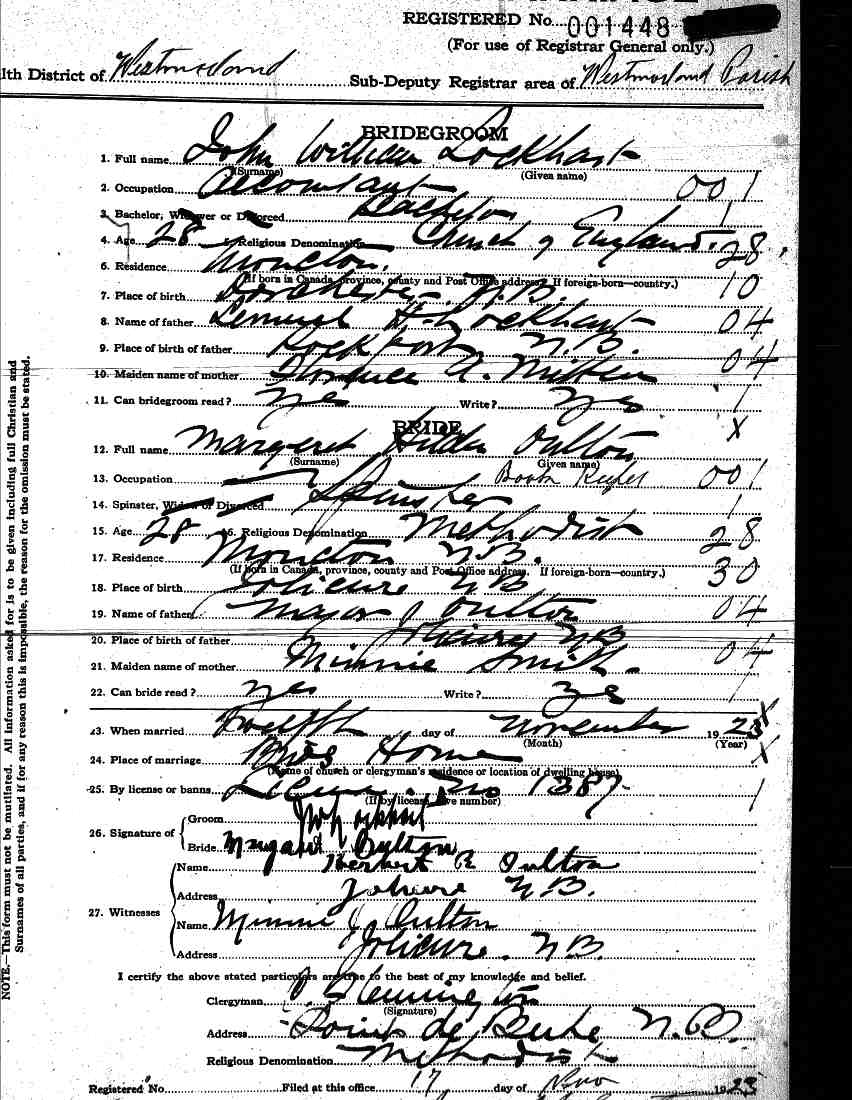 REGISTERED No. 001448
(For use of Registrar General only.)
lth District of Westmorland Sub-Deputy Registrar area of Westmorland Parish
BRIDEGROOM
1. Full name John William Lockhart
(Surname) (Given name)
2. Occupation Accountant 00 1
3. Bachelor, Widower or Divorced Bachelor 1
4. Age 28 5. Religious Denomination Church of England. 28
6. Residence Moncton.
(If born in Canada, province, county and Post Office address. If foreign-born—country.) 10
7. Place of birth Dorchester N.B.
8. Name of father Lemuel H. Lockhart 04
9. Place of birth of father Rockport N.B.
10. Maiden name of mother A. 04
11. Can bridegroom read? yes Write? yes 1
BRIDE X
12. Full name Margaret Hilda Oulton
(Surname) Given name)
13. Occupation Book Keeper 00 1
14. Spinster, Widow or Divorced Spinster 1
15. Age 28 16. Religious Denomination Methodist 28
17. Residence Moncton N.B.
(If born in Canada, province, county and Post Office address. If foreign-born—country.) 30
18. Place of birth Jolicure NB
19. Name of father Major J Oulton 04
20. Place of birth of father Jolicure NB
21. Maiden name of mother Minnie Smith. 04
22. Can bride read? yes Write? yes 1
23. When married Twelfth day of November 1923 X
(Month) (Year)
24. Place of marriage Home X
(Name of church or clergyman's residence or location of dwelling house)
25. By license or banns License. No 1387 1
(If by license, give number)
26. Signature of Groom Lockhart
Bride Margaret Oulton
27. Witnesses Name Herbert R Oulton
Address Jolicure N.B.
Name Minnie J Oulton
Address Jolicure. N.B.
I certify the above stated particulars are true to the best of my knowledge and belief.
Clergyman
(Signature)
Address Point de Bute N.B.
Religious Denomination Methodist
Registered No. Filed at this office 17 day of Nov 1923
NOTE.—This form must not be mutilated. All information asked for is to be given including full Christian and
Surnames of all parties, and if for any reason this is impossible, the reason for the omission must be stated.